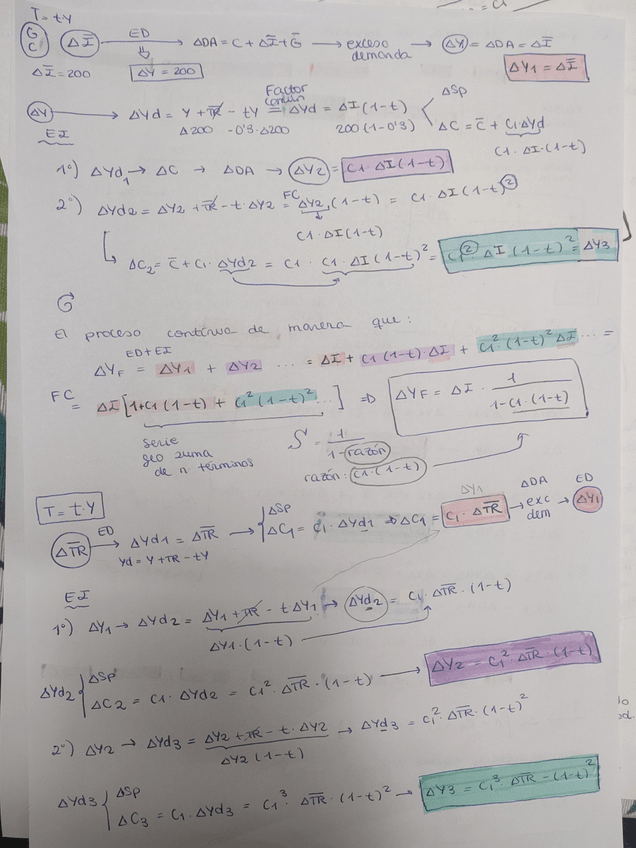 T = tY
G
C ΔI̅ → ED → ΔDA = C + ΔI̅ + G̅ → exceso demanda → ΔY = ΔDA = ΔI̅
ΔI̅ = 200 ΔY = 200 ΔY1 = ΔI̅
ΔY → ΔYd = Y + TR̅ - tY = Factor común ΔYd = ΔI(1-t) ΔSp
EI Δ200 -0'3·Δ200 200(1-0'3) ΔC = C̅ + C1·ΔYd
C1·ΔI·(1-t)
1º) ΔYd1 → ΔC → ΔDA → ΔY2 = C1·ΔI(1-t)
2º) ΔYd2 = ΔY2 + TR̅ - t·ΔY2 = FC ΔY2·(1-t) = C1·ΔI(1-t)²
C1·ΔI(1-t)
ΔC2 = C̅ + C1·ΔYd2 = C1·C1·ΔI(1-t)² = C1²·ΔI(1-t)² = ΔY3
G
El proceso continua de manera que:
ED+EI
ΔYF = ΔY1 + ΔY2 ... = ΔI + C1(1-t)·ΔI + C1²·(1-t)²ΔI ... =
FC = ΔI[1+C1(1-t) + C1²(1-t)² ...] ⇒ ΔYF = ΔI · 1 / 1-C1·(1-t)
serie geo zuma de n términos
S = 1 / 1-razón
razón: C1·(1-t)
T = t·Y
ΔTR̅ → ED → ΔYd1 = ΔTR̅ → ΔSp
ΔC1 = C1·ΔYd1 ⇒ ΔC1 = C1·ΔTR̅ ΔY1 → ΔDA exc dem → ED ΔY1
Yd = Y + TR - tY
EI
1º) ΔY1 → ΔYd2 = ΔY1 + TR̅ - tΔY1 → ΔYd2 = C1·ΔTR̅·(1-t)
ΔY1·(1-t)
ΔYd2 ΔSp
ΔC2 = C1·ΔYd2 = C1²·ΔTR̅·(1-t) → ΔY2 = C1²·ΔTR̅·(1-t)
2º) ΔY2 → ΔYd3 = ΔY2 + TR̅ - t·ΔY2 → ΔYd3 = C1²·ΔTR̅·(1-t)²
ΔY2(1-t)
ΔYd3 ΔSp
ΔC3 = C1·ΔYd3 = C1³·ΔTR̅·(1-t)² → ΔY3 = C1³·ΔTR̅-(1-t)²